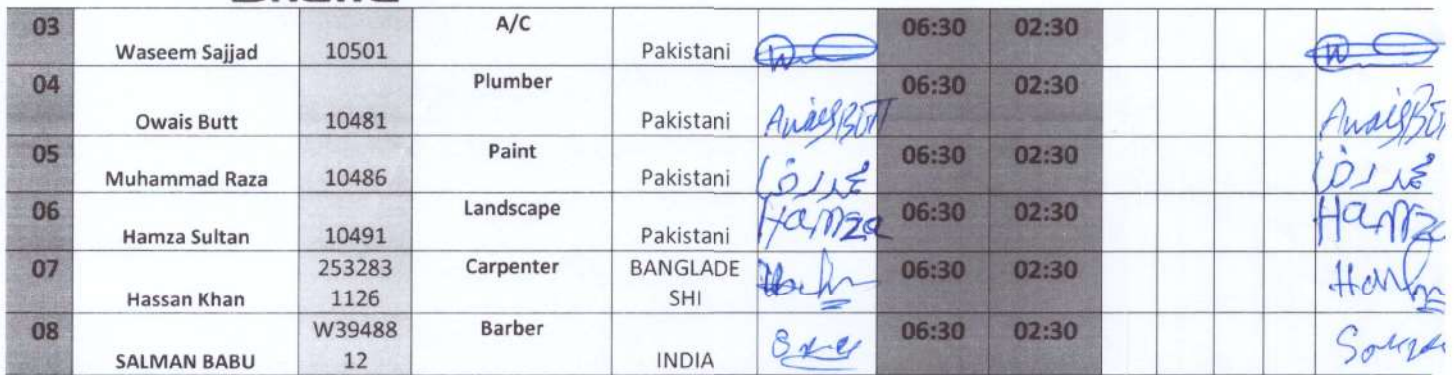 03 Waseem Sajjad 10501 A/C Pakistani W 06:30 02:30 W
04 Owais Butt 10481 Plumber Pakistani AwaisButt 06:30 02:30
05 Muhammad Raza 10486 Paint Pakistani محمد رضا 06:30 02:30 محمد رضا
06 Hamza Sultan 10491 Landscape Pakistani Hamza 06:30 02:30 Hamza
07 Hassan Khan 253283 Carpenter BANGLADE 06:30 02:30
1126 SHI
08 SALMAN BABU W39488 Barber INDIA 06:30 02:30
12